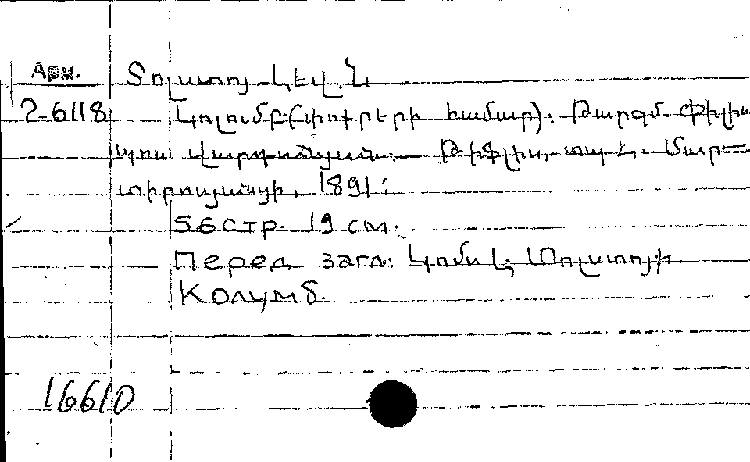 Арм. Տոլստոյ Լեվ Ն
2-6118 Կոլումբ (փոքրերի համար). Թարգմ. Փիլիպ
պոս Վարդանյան. – Թիֆլիս, տպ. Մար-
տիրոսյանցի, 1891։
56 стр. 19 см.
Перед загл: կոմս Լ. Տոլստոյի
Колумб.
16610